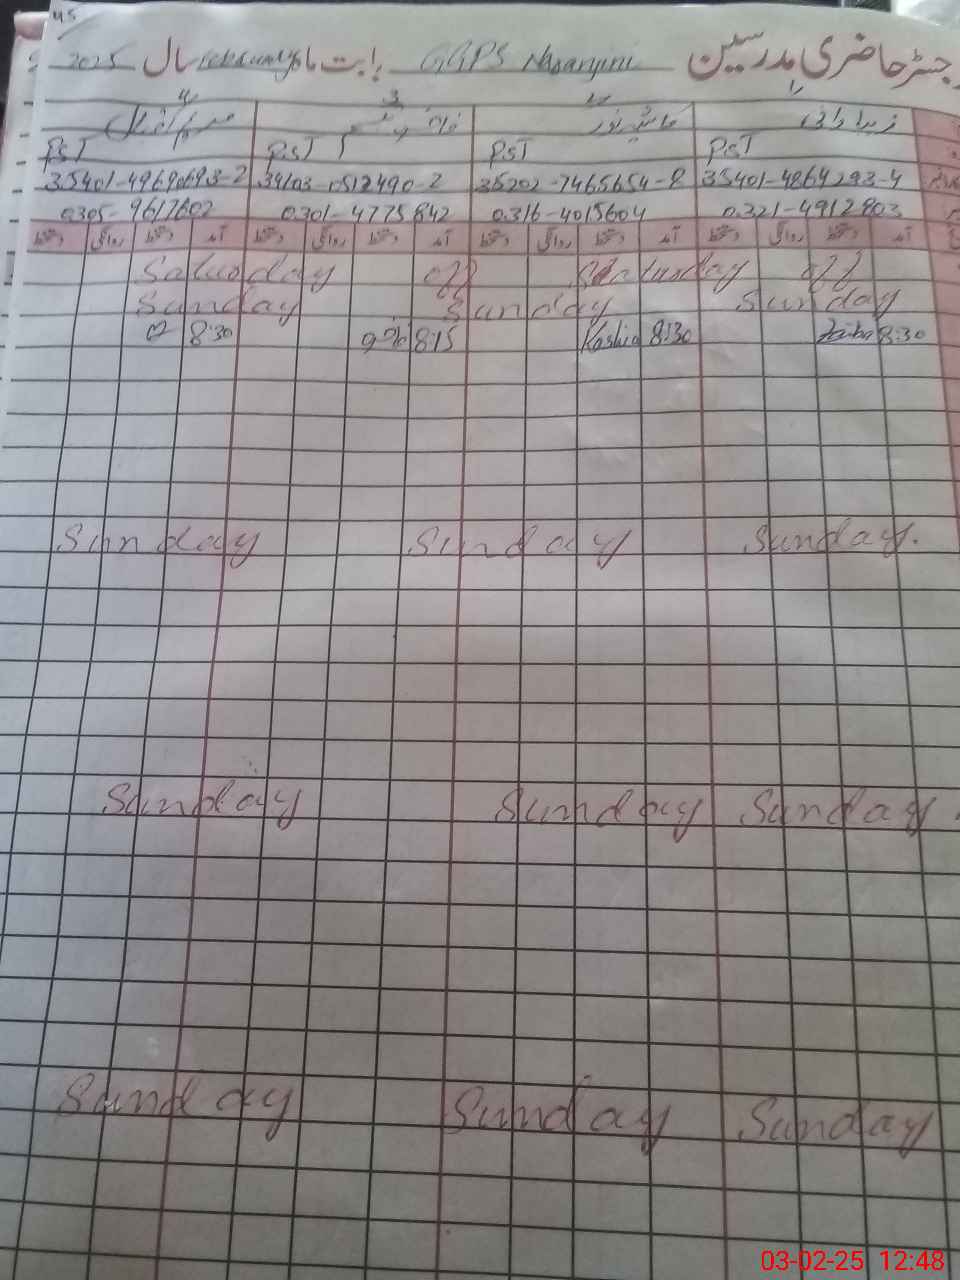 45
رجسٹر حاضری مدرسین GGPS بابت ماہ February سال 2025
1 2 3 4
PST PST PST PST
35401-4864293-4 35202-7465654-8 34103-0512490-2 35401-4969693-2
0321-4912803 0316-4015604 0301-4775842 0305-9617602
آمد دستخط روانگی دستخط آمد دستخط روانگی دستخط آمد دستخط روانگی دستخط آمد دستخط روانگی دستخط
Saturday off Saturday off
Sunday Sunday Sunday
8:30 8:15 Kashia 8:30 Zaiba 8:30
Sunday Sunday Sunday.
Sunday Sunday Sunday
Sunday Sunday Sunday
03-02-25 12:48